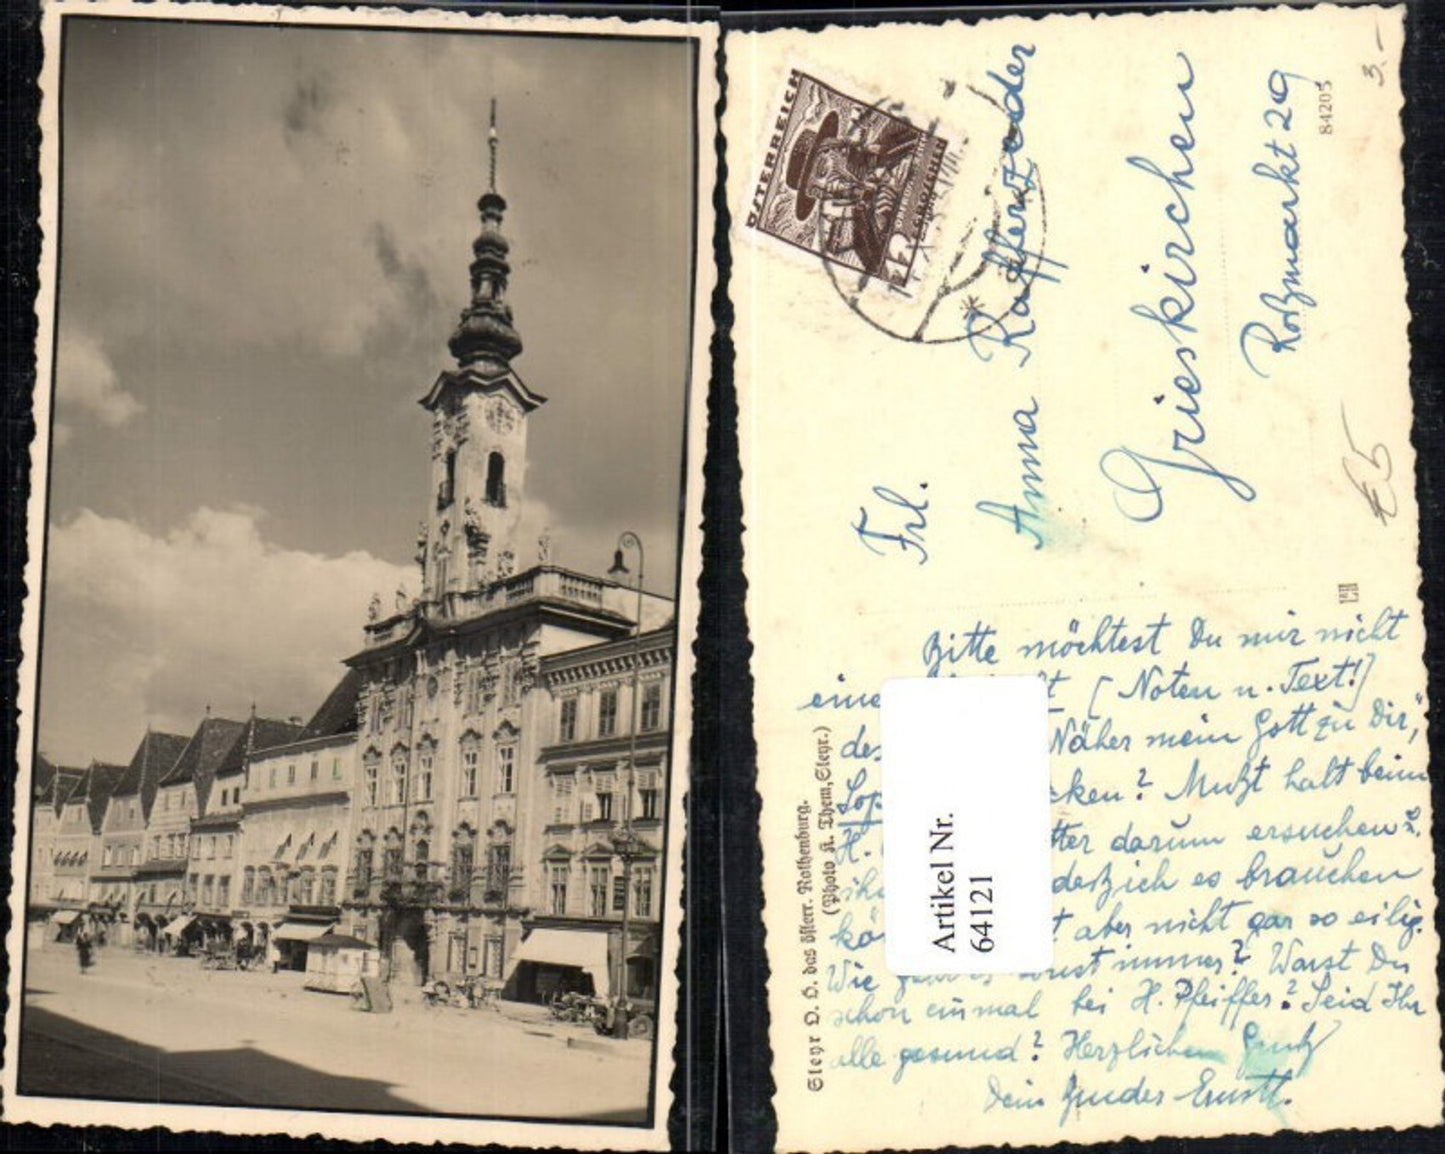 ÖSTERREICH
GROSCHEN
Frl.
Anna Rafferzeder
Grieskirchen
Roßmarkt 29
84205
3.-
€5
Steyr O. Ö. das österr. Rothenburg.
(Photo K. Them, Steyr.)
Artikel Nr.
64121
Bitte möchtest Du mir nicht
eine [Noten u. Text!]
des Näher mein Gott zu Dir,"
cken? Mußt halt beim
H. darum ersuchen
daß ich es brauchen
aber nicht gar so eilig.
Wie sonst immer? Warst Du
schon einmal bei H. Pfeiffer? Seid Ihr
alle gesund? Herzlichen Gruß
Dein Bruder Ernst.